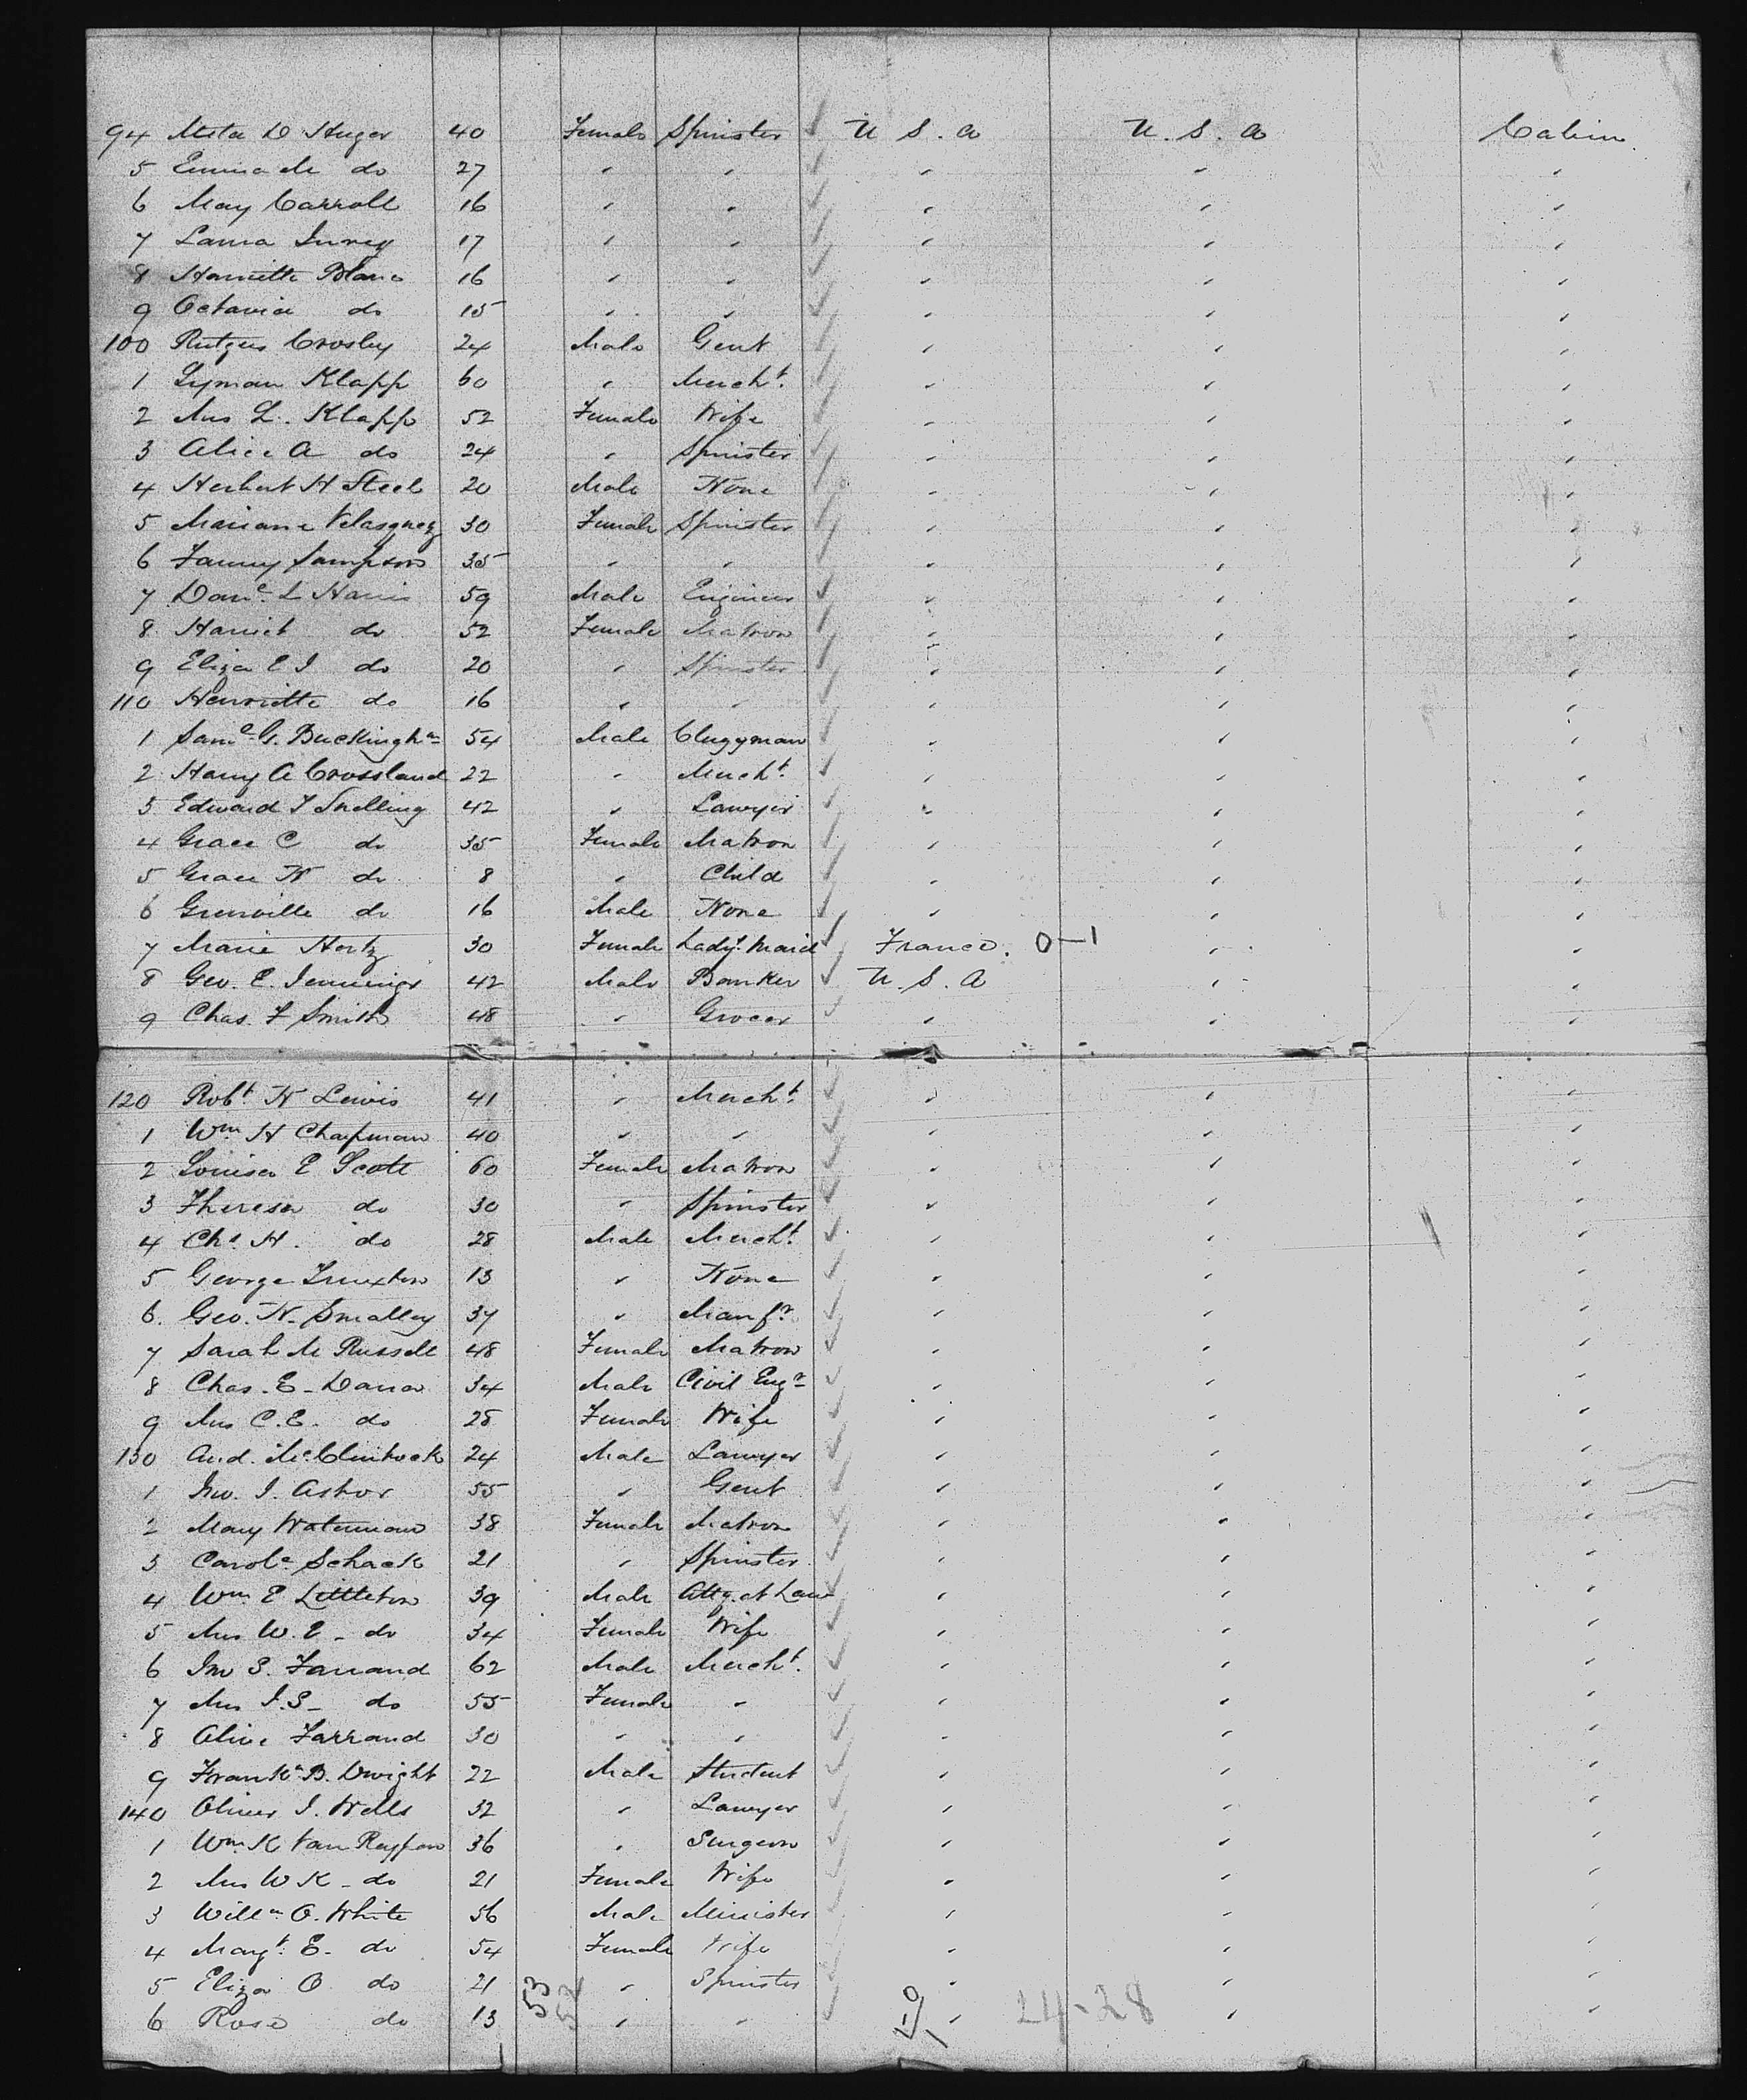 94 Meta D Huger 40 Female Spinster ✓ U S. A U. S. A Cabin.
5 Emma M do 27 " " ✓ " " "
6 May Carroll 16 " " ✓ " " "
7 Laura 17 " " ✓ " " "
8 Harriette Blanc 16 " " ✓ " " "
9 Octavia do 15 " " ✓ " " "
100 Rutgers Crosby 24 Male Gent ✓ " " "
1 Lyman Klapp 60 " Mercht. ✓ " " "
2 Mrs L. Klapp 52 Female Wife ✓ " " "
3 Alice A do 24 " Spinster ✓ " " "
4 Herbert H Steel 20 Male None ✓ " " "
5 Mariane Velasquez 30 Female Spinster ✓ " " "
6 Fanny Sampson 35 " " ✓ " " "
7 Danl. L Harris 59 Male Engineer ✓ " " "
8 Harriet do 52 Female Matron ✓ " " "
9 Eliza E I do 20 " Spinster ✓ " " "
110 Henriette do 16 " " ✓ " " "
1 Saml. G. Buckingham 54 Male Clergyman ✓ " " "
2 Harry A Crossland 22 " Mercht. ✓ " " "
3 Edward T Snelling 42 " Lawyer ✓ " " "
4 Grace C do 35 Female Matron ✓ " " "
5 Grace N do 8 " Child ✓ " " "
6 Grenville do 16 Male None ✓ " " "
7 Marie Hertz 30 Female Lady's Maid ✓ France. 0-1 " "
8 Geo. E. Jennings 42 Male Banker ✓ U. S. A " "
9 Chas. F Smith 48 " Grocer ✓ " " "
120 Robt N Lewis 41 " Mercht. ✓ " " "
1 Wm H Chapman 40 " " ✓ " " "
2 Louisa E Scott 60 Female Matron ✓ " " "
3 Theresa do 30 " Spinster ✓ " " "
4 Chs. H. do 28 Male Mercht. ✓ " " "
5 George Truxton 13 " None ✓ " " "
6. Geo. N. Smalley 37 " Manfr. ✓ " " "
7 Sarah M Russell 48 Female Matron ✓ " " "
8 Chas. E. Dana 34 Male Civil Engr ✓ " " "
9 Mrs C.E. do 28 Female Wife ✓ " " "
130 And. McClintock 24 Male Lawyer ✓ " " "
1 Jno. J. Astor 55 " Gent ✓ " " "
2 Mary Waterman 38 Female Matron ✓ " " "
3 Carole Schack 21 " Spinster ✓ " " "
4 Wm E Littleton 39 Male Atty. at Law ✓ " " "
5 Mrs W. E. do 34 Female Wife ✓ " " "
6 Jno S. Farrand 62 Male Mercht. ✓ " " "
7 Mrs J. S. do 55 Female " ✓ " " "
8 Olive Farrand 30 " " ✓ " " "
9 Frankn B. Dwight 22 Male Student ✓ " " "
140 Oliver J. Wells 32 " Lawyer ✓ " " "
1 Wm. K Van Reypen 36 " Surgeon ✓ " " "
2 Mrs W K. do 21 Female Wife ✓ " " "
3 Willm O. White 56 Male Minister ✓ " " "
4 Margt. E. do 54 Female Wife ✓ " " "
5 Eliza O do 21 53 " Spinster ✓ " " "
6 Rose do 13 52 " " ✓ " 24-28 " "